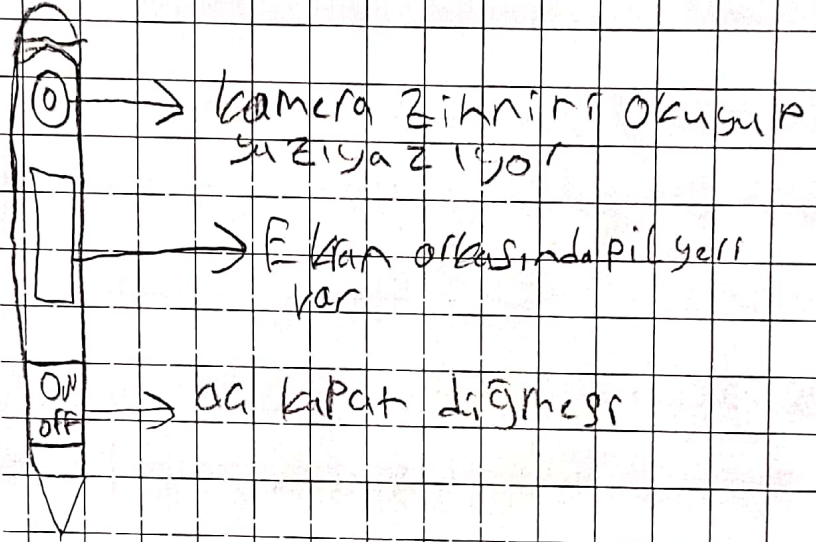 kamera zihnini okuyup
yazıyazıyor
Ekran arkasında pil yeri
var
ON
OFF
aç kapat düğmesi